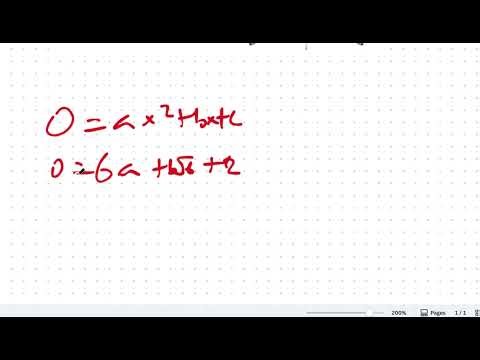 0 = ax² + bx + c
0 = 6a + b√6 + 2
200%
Pages
1 / 1